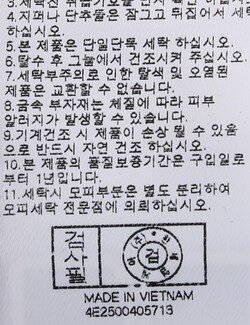 4.지퍼나 단추등은 잠그고 뒤집어서 세탁
하십시오.
5.본 제품은 단일단독 세탁 하십시오.
6.탈수 후 그늘에서 건조시켜 주십시오.
7.세탁부주의로 인한 탈색 및 오염된
제품은 교환할 수 없습니다.
8.금속 부자재는 체질에 따라 피부
알러지가 발생할 수 있습니다.
9.기계건조 시 제품이 손상 될 수 있음
으로 반드시 자연 건조 하십시오.
10.본 제품의 품질보증기간은 구입일로
부터 1년입니다.
11.세탁시 모피부분은 별도 분리하여
모피세탁 전문점에 의뢰하십시오.
검사필
(주)
검
MADE IN VIETNAM
4E2500405713